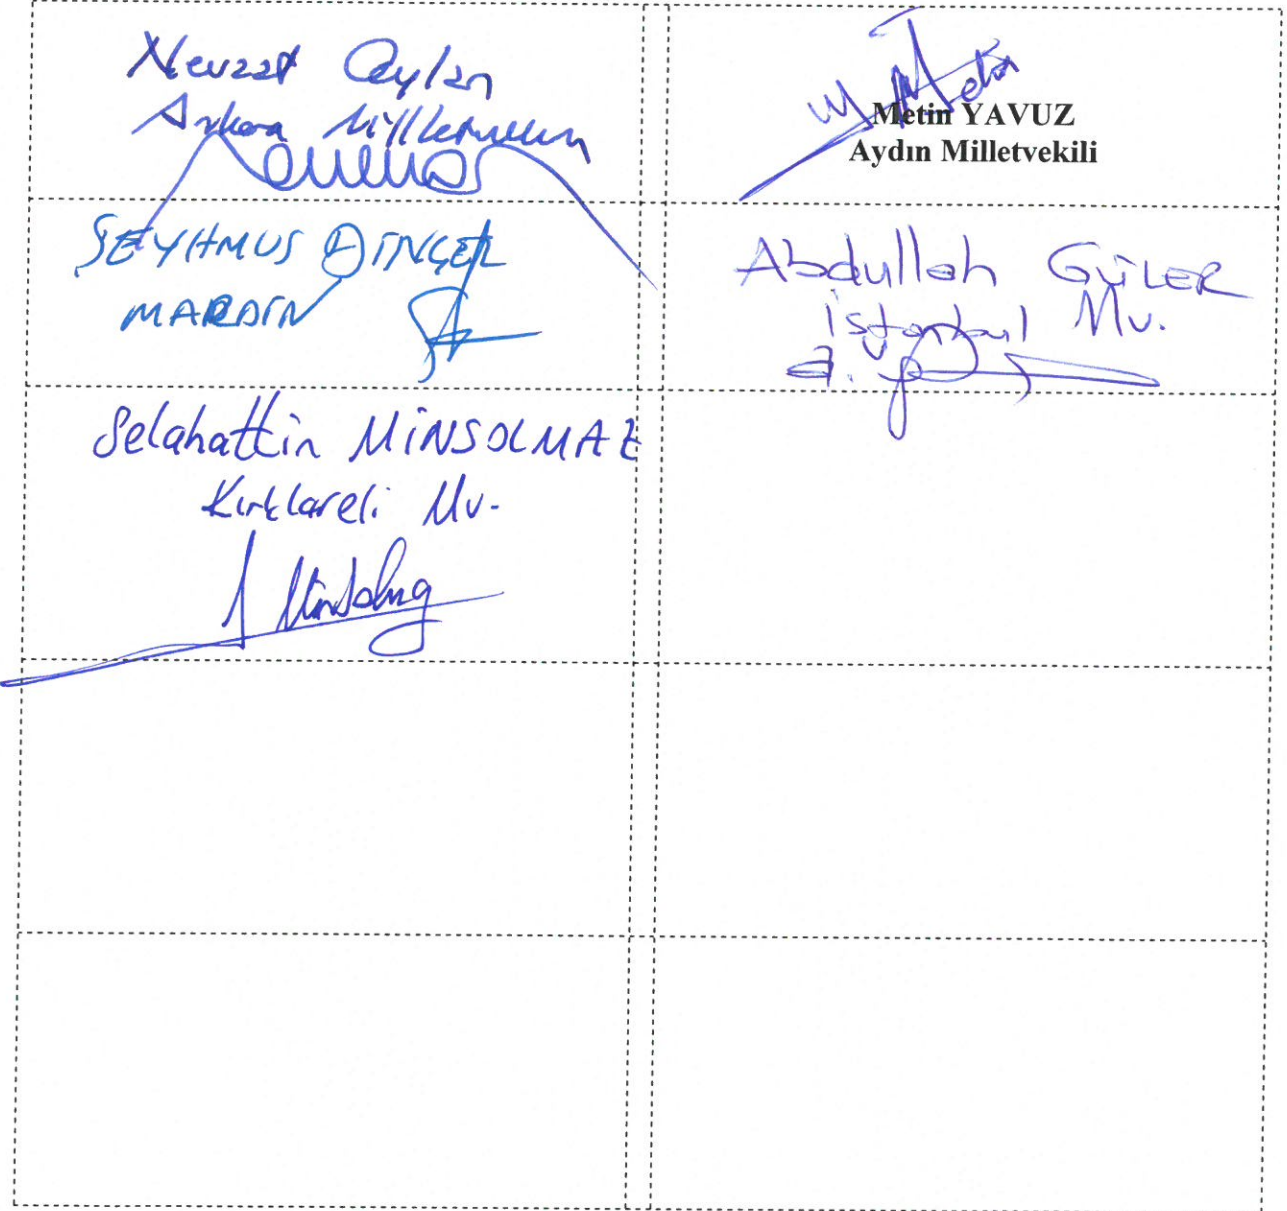 Nevzat Ceylan
Ankara Milletvekili
Metin YAVUZ
Aydın Milletvekili
ŞEYHMUS DİNÇEL
MARDİN
Abdullah GÜLER
İstanbul Mv.
Selahattin MİNSOLMAZ
Kırklareli Mv.